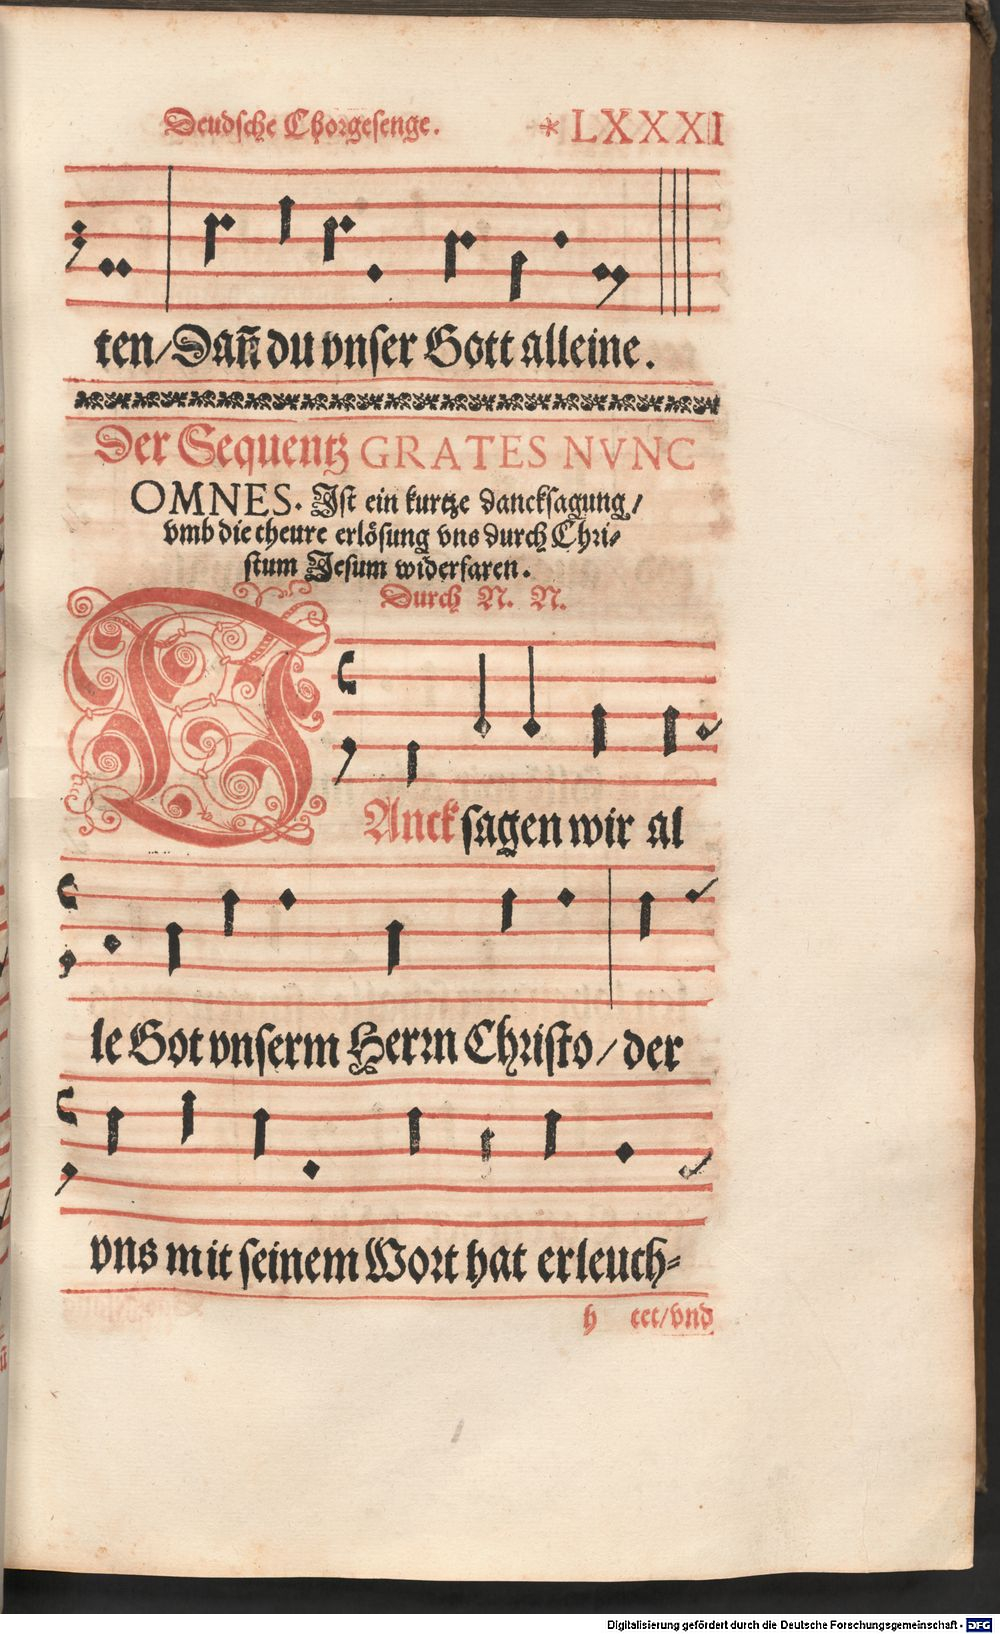 Deudsche Chorgesenge. * LXXXI
ten/Dañ du vnser Gott alleine.
Der Sequentz GRATES NVNC
OMNES. Ist ein kurtze dancksagung/
vmb die theure erlösung vns durch Chri-
stum Jesum widerfaren.
Durch N. N.
DAnck sagen wir al
le Got vnserm Herrn Christo/der
vns mit seinem Wort hat erleuch-
h tet/vnd
Digitalisierung gefördert durch die Deutsche Forschungsgemeinschaft - DFG